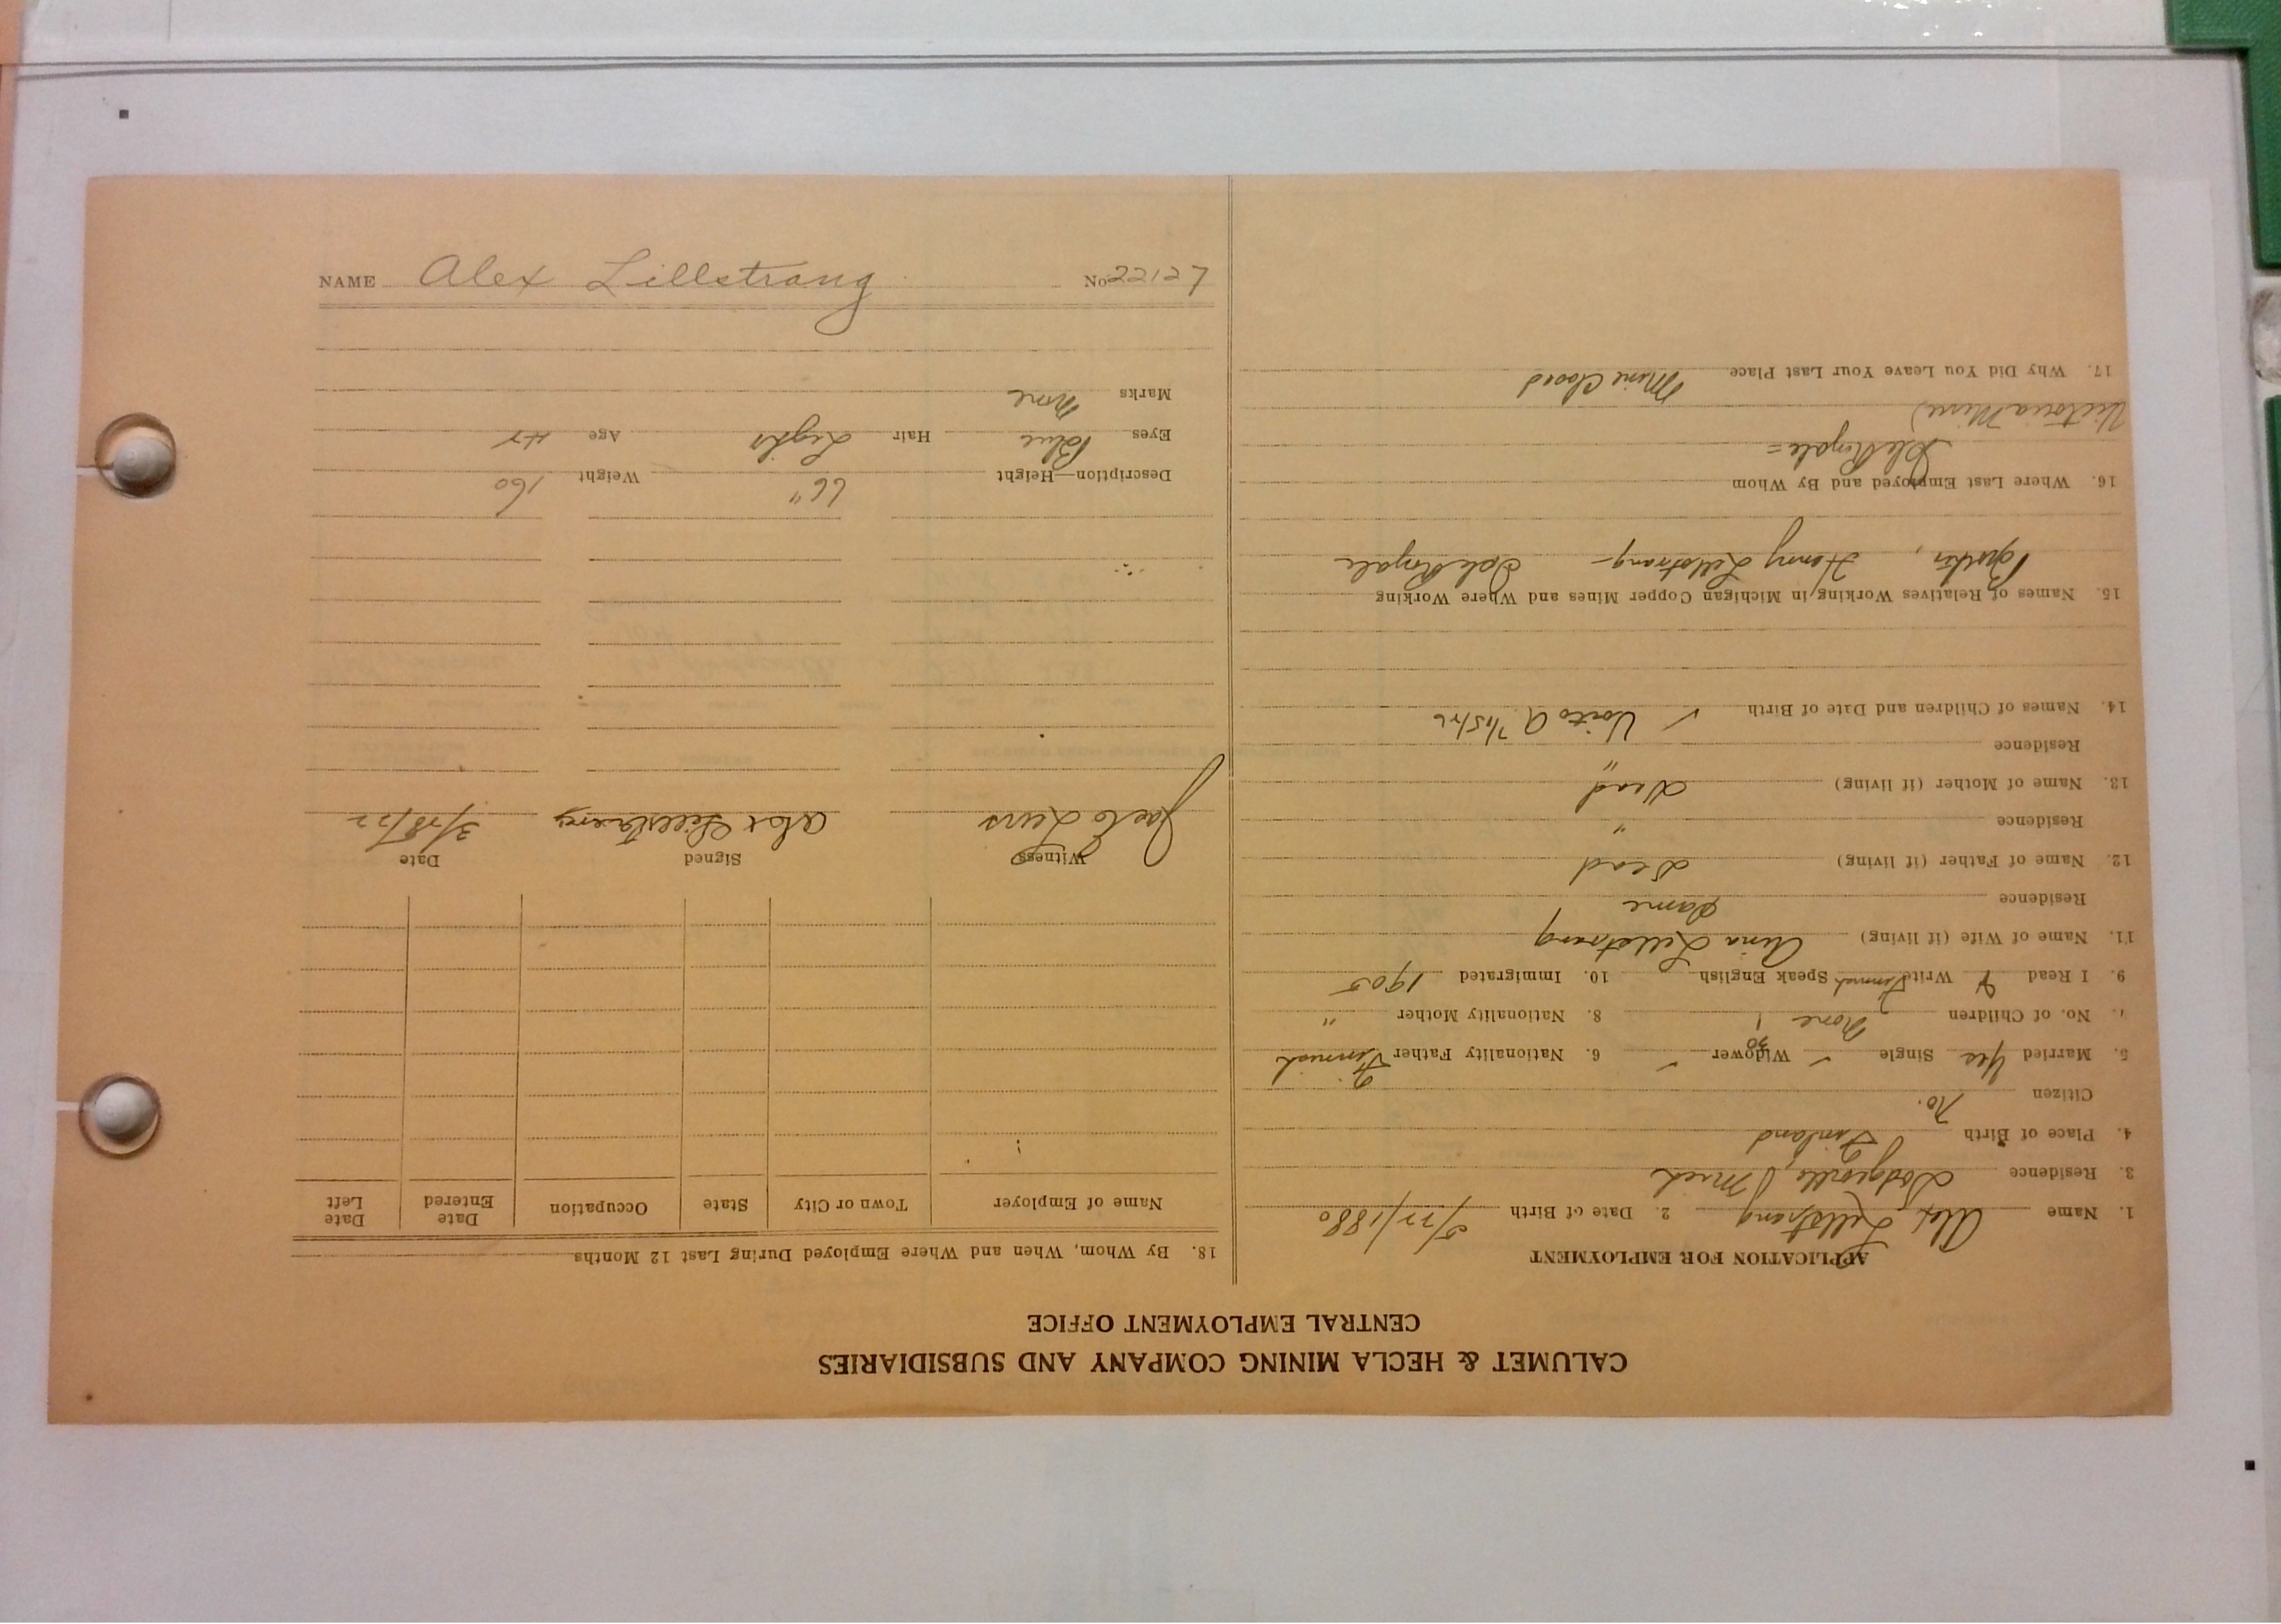 NAME Alex Lillstrang No 22127
CALUMET & HECLA MINING COMPANY AND SUBSIDIARIES
CENTRAL EMPLOYMENT OFFICE
APPLICATION FOR EMPLOYMENT
1. Name Alex Lillstrang 2. Date of Birth 5/22/1880
3. Residence Dodgeville, Mich
4. Place of Birth Finland
Citizen no.
5. Married Yes Single ✓ Widower ✓ 6. Nationality Father Finnish
No. of Children None 1 8. Nationality Mother "
9. I Read & Write Finnish Speak English 10. Immigrated 1905
11. Name of Wife (if living) Aina Lillstrang
Residence Same
12. Name of Father (if living) Dead
Residence "
13. Name of Mother (if living) Dead
Residence "
14. Names of Children and Date of Birth ✓
15. Names of Relatives Working in Michigan Copper Mines and Where Working
Brother, Henry Lillstrang - Isle Royale
16. Where Last Employed and By Whom
Isle Royale =
Victoria Mine)
17. Why Did You Leave Your Last Place Mine Closed
18. By Whom, When and Where Employed During Last 12 Months
Name of Employer Town or City State Occupation Date Entered Date Left
Witness Signed Date
Alex Lillstrang
Description—Height 66" Weight 160
Eyes Blue Hair Light Age
Marks None